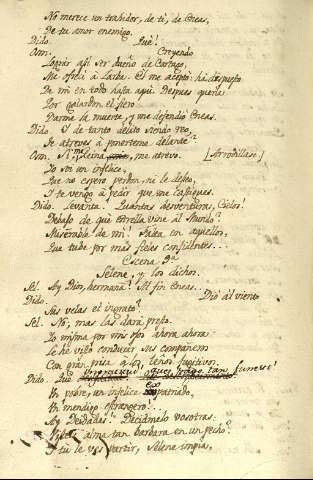 No merece un trahidor, de ti, de Eneas,
De tu amor enemigo.
Dido. Què!
Osm. Creyendo
Lograr asi ser dueño de Cartago,
Me ofreci à Iarba: el me aceptò: ha dispuesto
De mi en todo hasta aqui. Despues queria
Por galardon el fiero
Darme la muerte, y me defendiò Eneas.
Dido. I de tanto delito siendo reo,
Te atreves à ponerteme delante?
Osm. Si, mi Reina, me atrevo. [Arrodillase]
Yo soi un infelice,
Que no espero perdon, ni le deseo,
I te vengo à pedir que me castigues.
Dido. Levanta! Quantas desventuras, Cielos!
Debajo de què estrella vine al Mundo?
Miserable de mi! Falta en aquellos,
Que tube por mas fieles confidentes...
Escena 9.a
Selene, y los dichos.
Sel. Ay Dios, hermana! Al fin Eneas...
Dido. Diò al viento
Sus velas el ingrato?
Sel. No, mas las darà presto.
Yo misma por mis ojos ahora ahora
Le he visto conducir sus compañeros
Con gran prisa à los leños fugitivos.
Dido Que tan funesto!
Un pobre, un infelice expatriado,
Un mendigo estrangero!
Ay Deidades! Decidmelo vosotras:
alma tan barbara en un pecho?
I tu le ves partir, Selene impia,